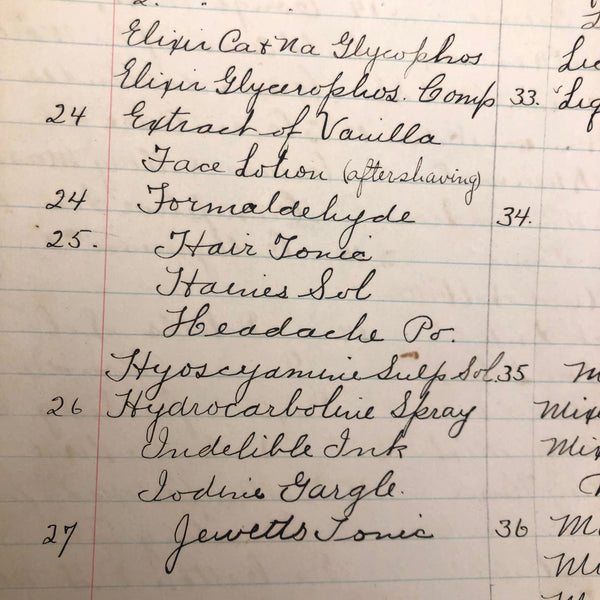 2. "
Elixir Ca & Na Glycophos
Elixir Glycerophos. Comp
24 Extract of Vanilla
Face Lotion (aftershaving)
24 Formaldehyde
25. Hair Tonic
Haines Sol
Headache Po.
Hyoscyamine Sulp Sol.
26 Hydrocarboline Spray
Indelible Ink
Iodine Gargle.
27 Jewetts Tonic
33.
34.
35 M
Mix
Mix
36 M
M